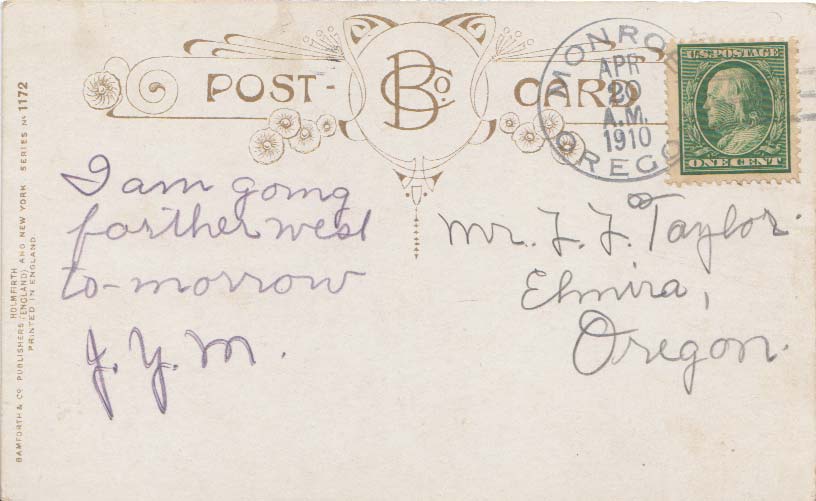 POST-
B Co.
CARD
MONROE
APR
20
A.M.
1910
OREGO
U.S. POSTAGE
ONE CENT
I am going
farther west
to-morrow
J. Y. M.
Mr. F. F. Taylor.
Elmira,
Oregon.
BAMFORTH & CO. PUBLISHERS HOLMFIRTH (ENGLAND) AND NEW YORK SERIES No 1172
PRINTED IN ENGLAND